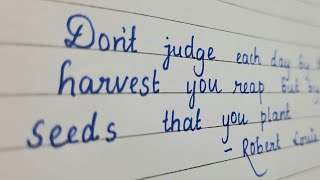 Don't judge each day by
harvest you reap but by
seeds that you plant
- Robert Louis